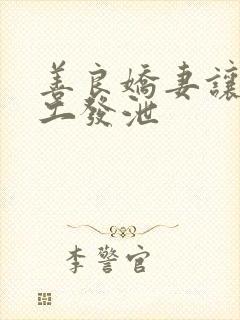 善良嬌妻讓
工發泄
李警官